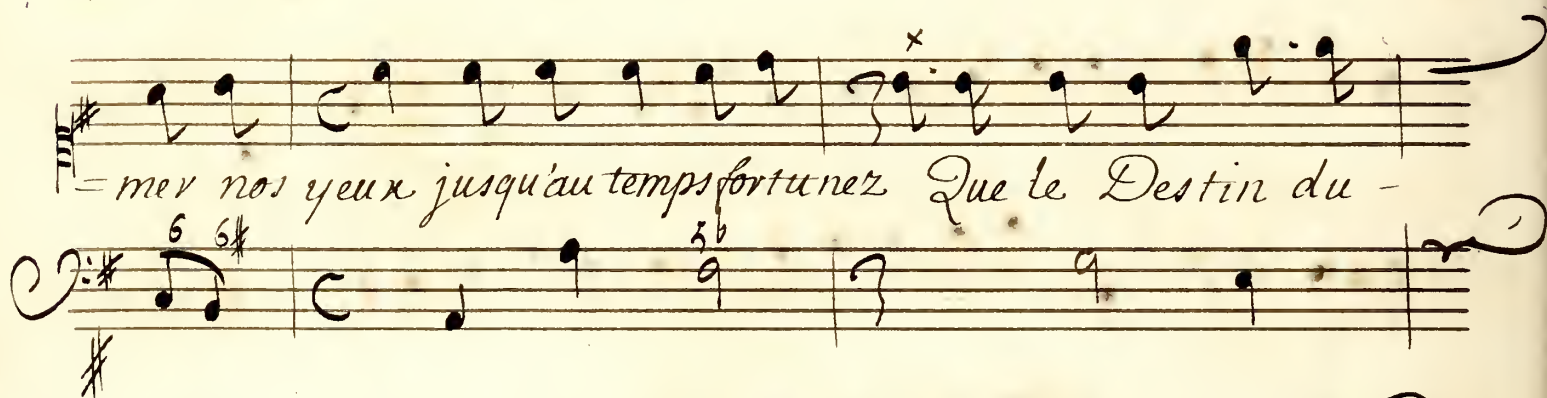 =mer nos yeux jusqu'au temps fortunez Que le Destin du-
6 6# 5b